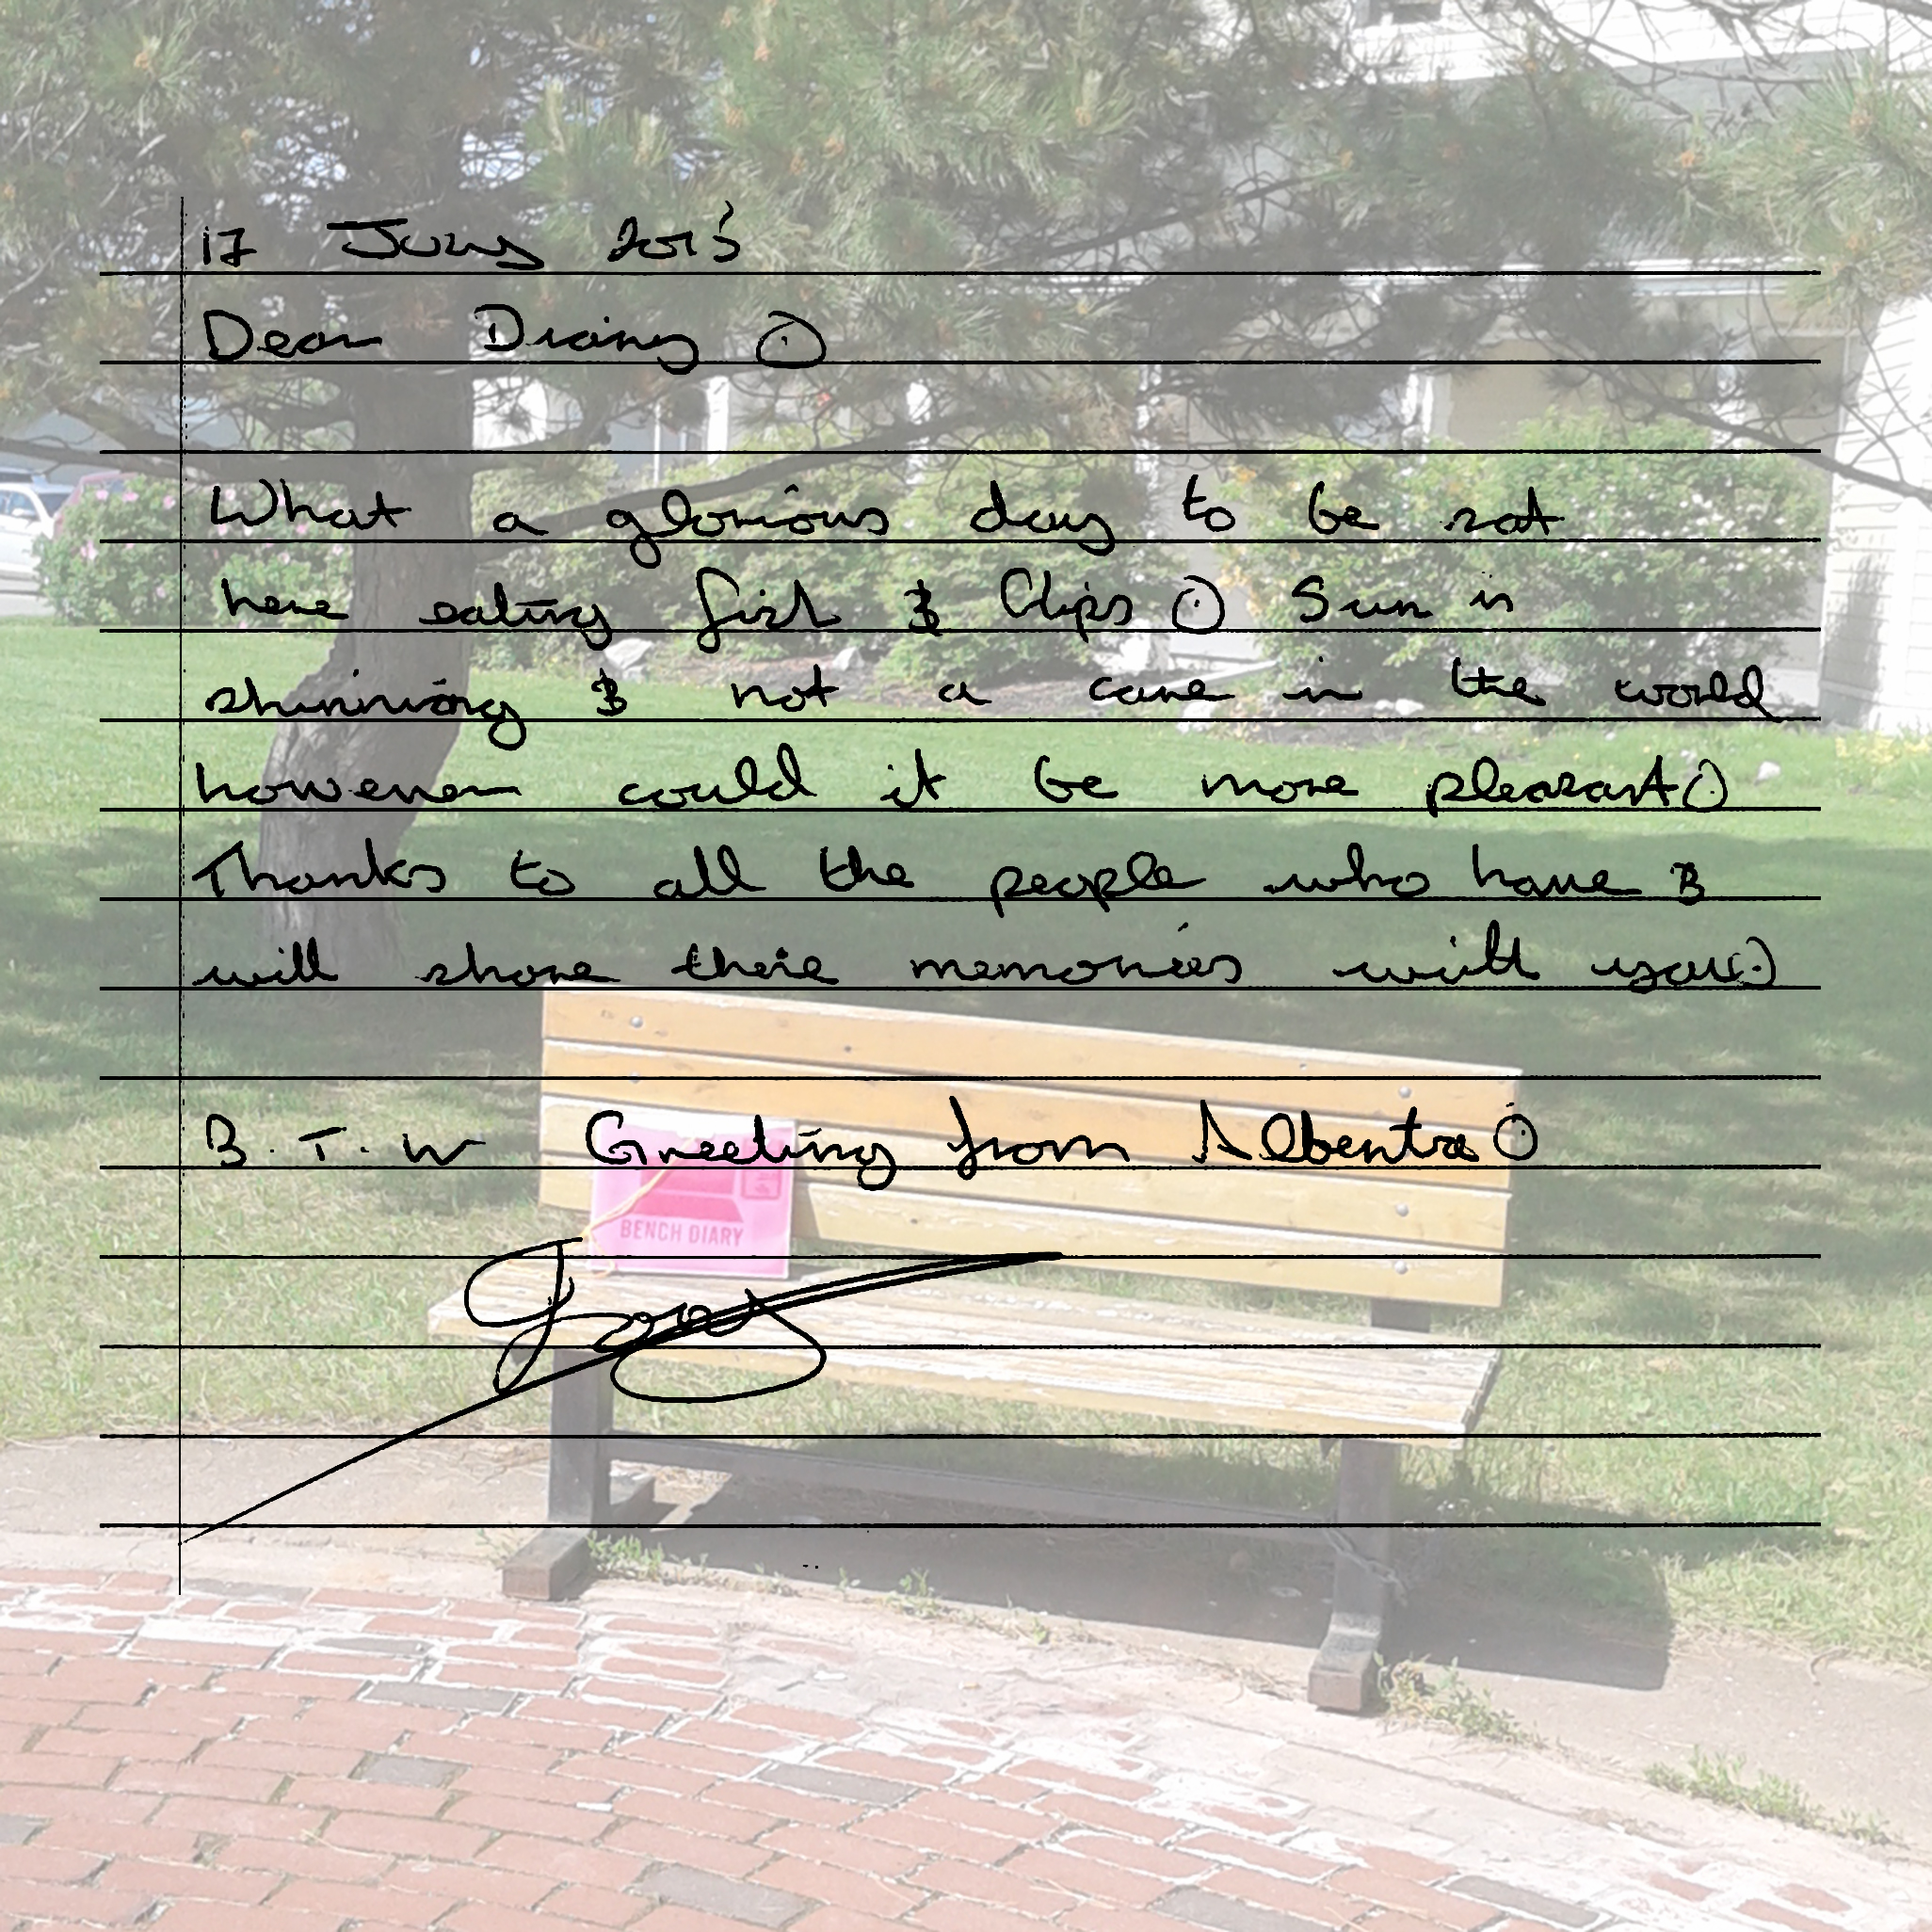 17 July
Dear Diary ⊙
What a glorious day to be sat
here eating fish & Chips ⊙ Sun is
shinning & not a care in the world
however could it be more pleasant ⊙
Thanks to all the people who have &
will share their memories with you ⊙
B.T.W Greeting from Alberta ⊙
BENCH DIARY